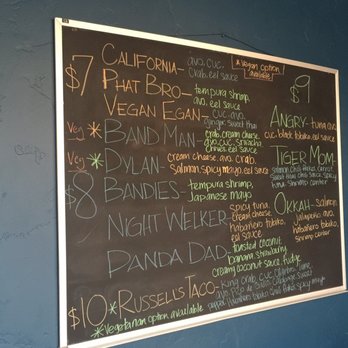 $7
CALIFORNIA- avo, cuc,
crab, eel sauce
*vegan option
available
PHAT BRO- tempura shrimp,
avo, eel sauce
VEGAN EGAN- cuc, avo,
ginger sweet thai
Veg * BAND MAN- crab, cream cheese,
avo, cuc, sriracha,
Veg * DYLAN- cream cheese, avo, crab,
salmon, spicy mayo, eel sauce
$8
BANDIES- tempura shrimp,
Japanese mayo
NIGHT WELKER- spicy tuna,
cream cheese,
habanero tobiko,
eel sauce
PANDA DAD- toasted coconut
banana, strawberry
creamy coconut sauce, fudge
$10 *RUSSELL'S TACO- king crab, cuc, cilantro,
*Vegetarian option available
$9
ANGRY- tuna, avo
cuc, black tobiko, eel sauce
TIGER MOM-
OKKAH- salmon
jalapeño, avo,
habanero tobiko,
shrimp center